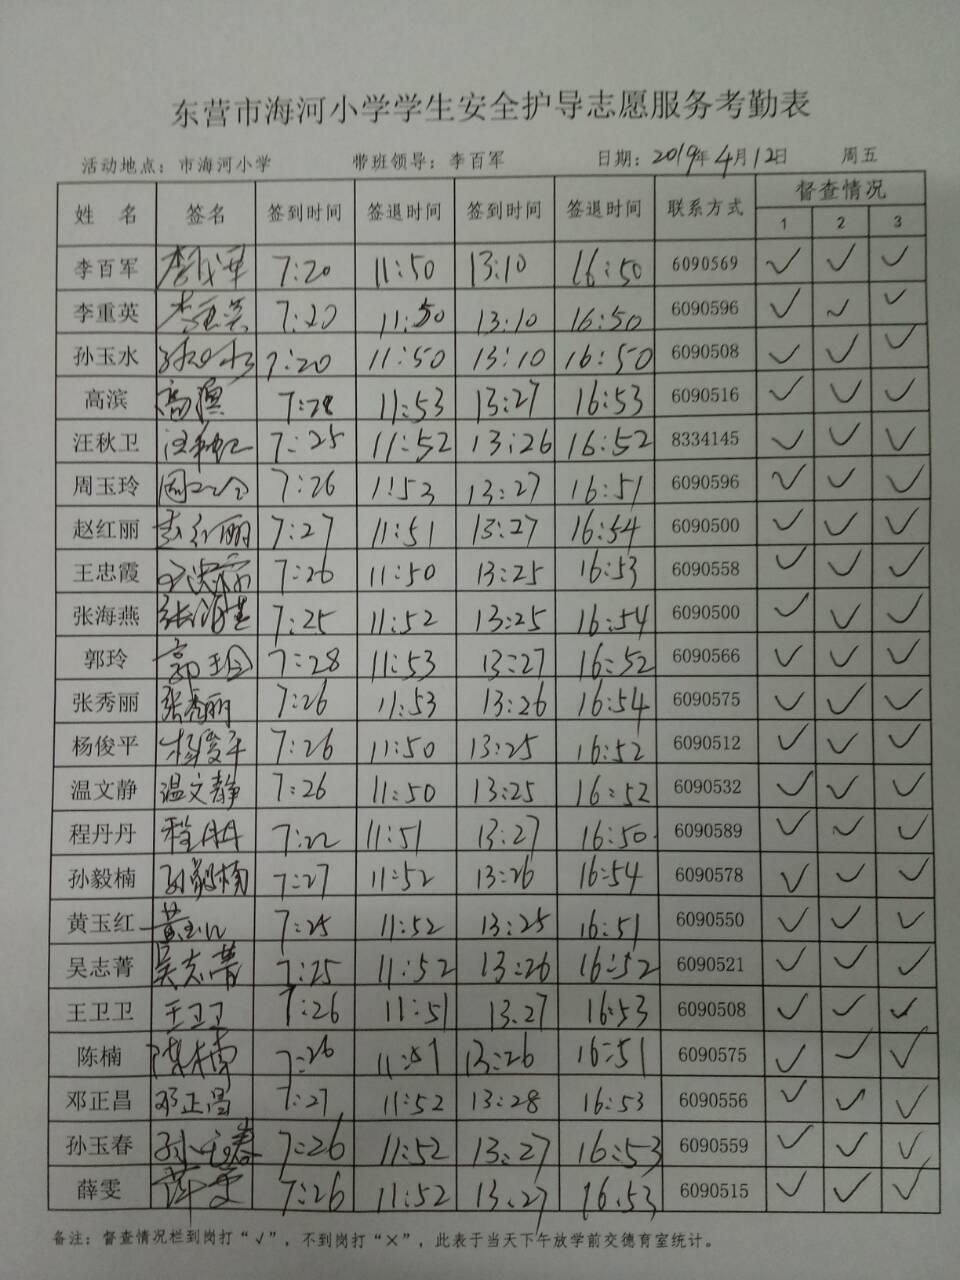 东营市海河小学学生安全护导志愿服务考勤表
活动地点：市海河小学 带班领导：李百军 日期：2019年4月12日 周五
姓 名 签名 签到时间 签退时间 签到时间 签退时间 联系方式 督查情况
1 2 3
李百军 李百军 7:20 11:50 13:10 16:50 6090569 ✓ ✓ ✓
李重英 李重英 7:20 11:50 13:10 16:50 6090596 ✓ ✓ ✓
孙玉水 孙玉水 7:20 11:50 13:10 16:50 6090508 ✓ ✓ ✓
高滨 高滨 7:28 11:53 13:27 16:53 6090516 ✓ ✓ ✓
汪秋卫 汪秋卫 7:25 11:52 13:26 16:52 8334145 ✓ ✓ ✓
周玉玲 周玉玲 7:26 11:53 13:27 16:51 6090596 ✓ ✓ ✓
赵红丽 赵红丽 7:27 11:51 13:27 16:54 6090500 ✓ ✓ ✓
王忠霞 7:26 11:50 13:25 16:53 6090558 ✓ ✓ ✓
张海燕 张海燕 7:25 11:52 13:25 16:54 6090500 ✓ ✓ ✓
郭玲 郭玲 7:28 11:53 13:27 16:52 6090566 ✓ ✓ ✓
张秀丽 张秀丽 7:26 11:53 13:26 16:54 6090575 ✓ ✓ ✓
杨俊平 杨俊平 7:26 11:50 13:25 16:52 6090512 ✓ ✓ ✓
温文静 温文静 7:26 11:50 13:25 16:52 6090532 ✓ ✓ ✓
程丹丹 程丹丹 7:22 11:51 13:27 16:50 6090589 ✓ ✓ ✓
孙毅楠 孙毅楠 7:27 11:52 13:26 16:54 6090578 ✓ ✓ ✓
黄玉红 黄玉红 7:25 11:52 13:25 16:51 6090550 ✓ ✓ ✓
吴志菁 吴志菁 7:25 11:52 13:26 16:52 6090521 ✓ ✓ ✓
王卫卫 王卫卫 7:26 11:51 13.27 16:53 6090508 ✓ ✓ ✓
陈楠 陈楠 7:26 11:51 13:26 16:51 6090575 ✓ ✓ ✓
邓正昌 邓正昌 7:27 11:52 13:28 16:53 6090556 ✓ ✓ ✓
孙玉春 孙玉春 7:26 11:52 13:27 16:53 6090559 ✓ ✓ ✓
薛雯 薛雯 7:26 11:52 13:27 16:53 6090515 ✓ ✓ ✓
备注：督查情况栏到岗打“√”，不到岗打“×”，此表于当天下午放学前交德育室统计。